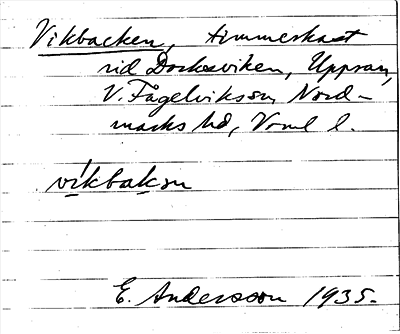 Vikbacken, timmerkast
vid Dockeviken, Uppran,
V. Fågelviks sn, Nord-
marks hd, Vrml l.
víkbakɐn
E. Andersson 1935.